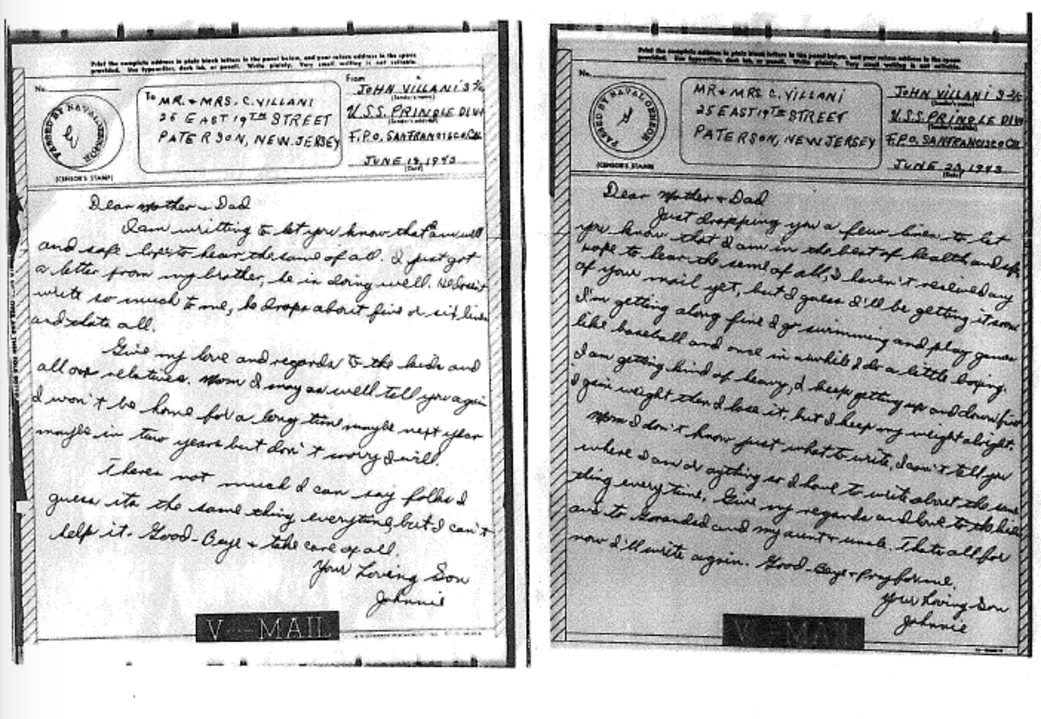 Print the complete address in plain block letters in the panel below, and your return address in the space
provided. Use typewriter, dark ink, or pencil. Write plainly. Very small writing is not suitable.
No.
PASSED BY NAVAL CENSOR
(CENSOR'S STAMP)
To
MR. & MRS. C. VILLANI
25 EAST 19TH STREET
PATERSON, NEW JERSEY
From
JOHN VILLANI S 2/c
(Sender's name)
U.S.S. PRINGLE
(Sender's address)
F.P.O. SANFRANCISCO CAL
JUNE 19, 1943
(Date)
Dear Mother & Dad
I am writting to let you know that am well
and safe hope to hear the same of all. I just got
a letter from my brother, he is doing well. He doesn't
write so much to me, he drops about five or six lines
and thats all.
Give my love and regards to the kids and
all our relatives. Mom I may as well tell you again
I won't be home for a long time maybe next year
maybe in two years but don't worry I will.
Theres not much I can say folks I
guess its the same thing everytime, but I can't
help it. Good-Baye & take care of all.
Your Loving Son
Johnnie
V-MAIL
Print the complete address in plain block letters in the panel below, and your return address in the space
provided. Use typewriter, dark ink, or pencil. Write plainly. Very small writing is not suitable.
No.
PASSED BY NAVAL CENSOR
(CENSOR'S STAMP)
MR & MRS. C. VILLANI
25 EAST 19TH STREET
PATERSON, NEW JERSEY
JOHN VILLANI S-2/c
(Sender's name)
U.S.S. PRINGLE
(Sender's address)
F.P.O. SANFRANCISCO CAL
JUNE 1943
(Date)
Dear Mother & Dad
Just dropping you a few lines to let
you know that I am in the best of health and safe
hope to hear the same of all, I haven't received any
of your mail yet, but I guess I'll be getting it soon
I'm getting along fine I go swimming and play games
like baseball and once in awhile I do a little boxing.
I am getting kind of heavy, I keep getting up and down first
I gain weight then I lose it, but I keep my weight alright.
Mom I don't know just what to write, I can't tell you
where I am or anything so I have to write about the same
thing everytime. Give my regards and love to the kids
and to Grandad and my aunt & uncle. Thats all for
now I'll write again. Good-Baye & pray for me.
Your Loving Son
Johnnie
V-MAIL